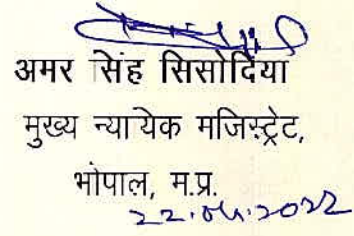 अमर सिंह सिसोदिया
मुख्य न्यायिक मजिस्ट्रेट,
भोपाल, म.प्र.
22.04.2022